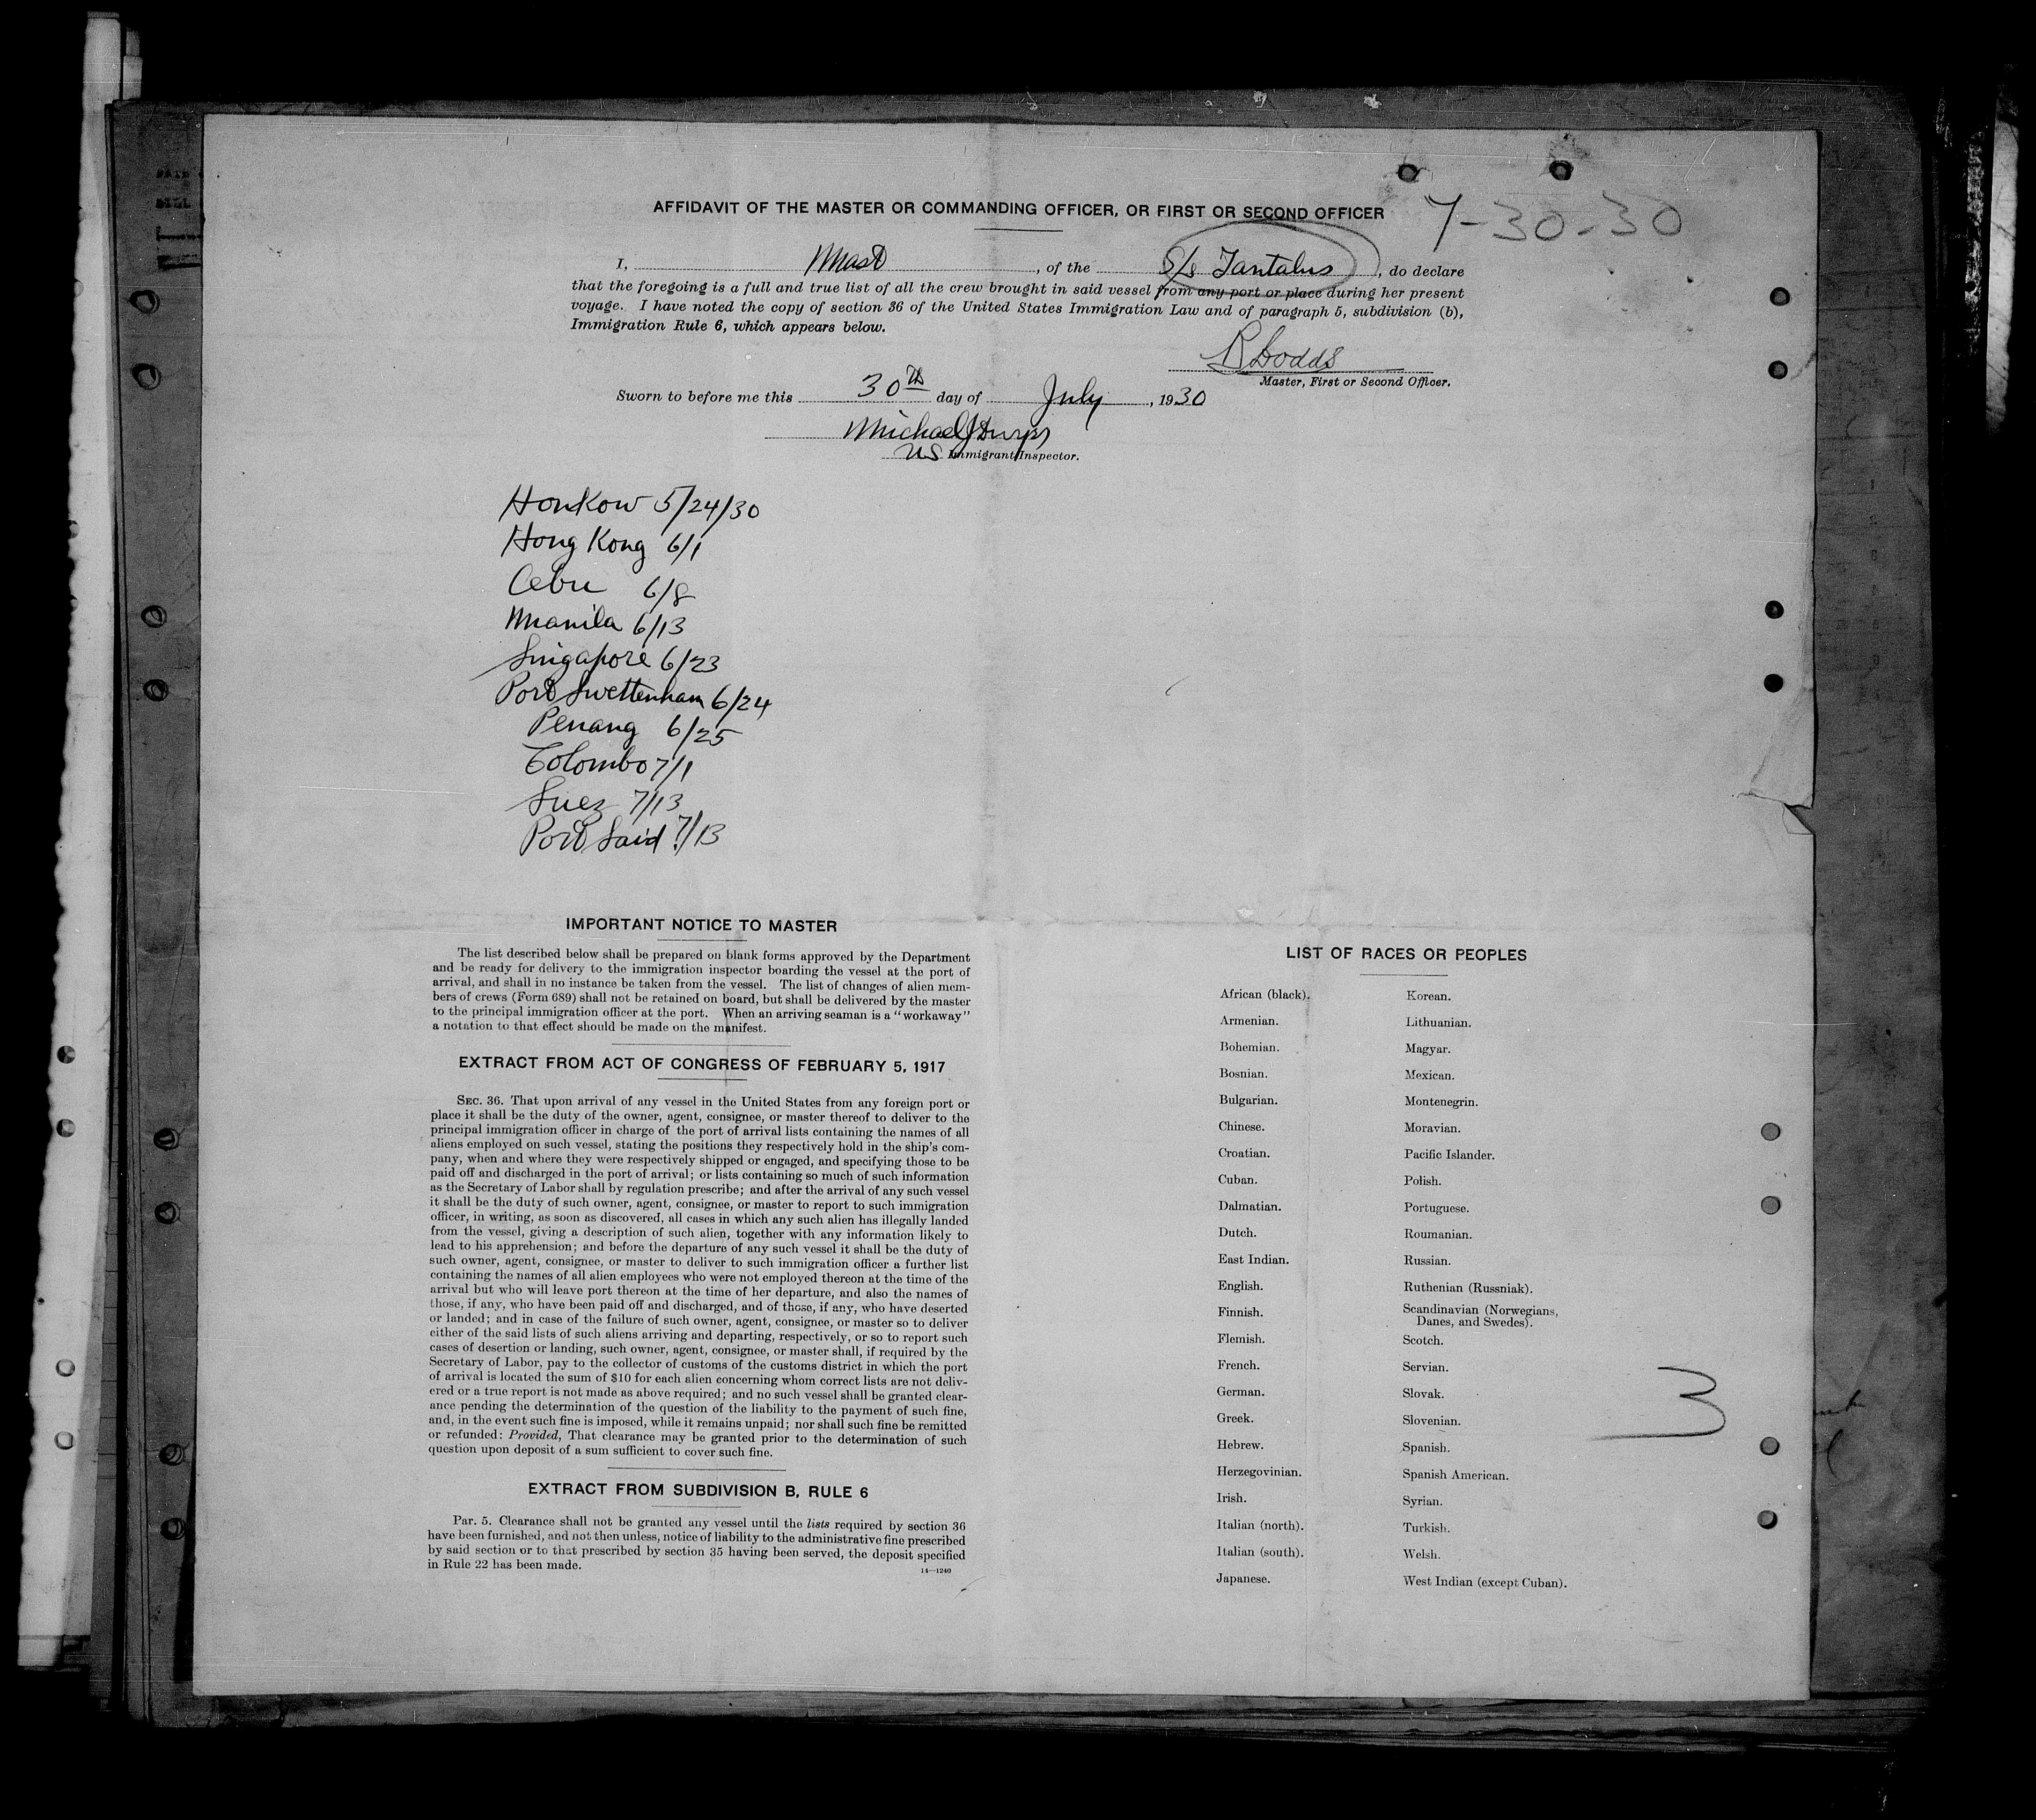 AFFIDAVIT OF THE MASTER OR COMMANDING OFFICER, OR FIRST OR SECOND OFFICER
7-30-30
I, Mast, of the S/s Tantalus, do declare
that the foregoing is a full and true list of all the crew brought in said vessel from any port or place during her present
voyage. I have noted the copy of section 36 of the United States Immigration Law and of paragraph 5, subdivision (b),
Immigration Rule 6, which appears below.
R Dodds
Master, First or Second Officer.
Sworn to before me this 30th day of July, 1930
Michael J
US Immigrant Inspector.
Honkow 5/24/30
Hong Kong 6/1
Cebu 6/8
Manila 6/13
Singapore 6/23
Port Swettenham 6/24
Penang 6/25
Colombo 7/1
Suez 7/13
Port Said 7/13
IMPORTANT NOTICE TO MASTER
The list described below shall be prepared on blank forms approved by the Department
and be ready for delivery to the immigration inspector boarding the vessel at the port of
arrival, and shall in no instance be taken from the vessel. The list of changes of alien mem-
bers of crews (Form 689) shall not be retained on board, but shall be delivered by the master
to the principal immigration officer at the port. When an arriving seaman is a "workaway"
a notation to that effect should be made on the manifest.
EXTRACT FROM ACT OF CONGRESS OF FEBRUARY 5, 1917
SEC. 36. That upon arrival of any vessel in the United States from any foreign port or
place it shall be the duty of the owner, agent, consignee, or master thereof to deliver to the
principal immigration officer in charge of the port of arrival lists containing the names of all
aliens employed on such vessel, stating the positions they respectively hold in the ship's com-
pany, when and where they were respectively shipped or engaged, and specifying those to be
paid off and discharged in the port of arrival; or lists containing so much of such information
as the Secretary of Labor shall by regulation prescribe; and after the arrival of any such vessel
it shall be the duty of such owner, agent, consignee, or master to report to such immigration
officer, in writing, as soon as discovered, all cases in which any such alien has illegally landed
from the vessel, giving a description of such alien, together with any information likely to
lead to his apprehension; and before the departure of any such vessel it shall be the duty of
such owner, agent, consignee, or master to deliver to such immigration officer a further list
containing the names of all alien employees who were not employed thereon at the time of the
arrival but who will leave port thereon at the time of her departure, and also the names of
those, if any, who have been paid off and discharged, and of those, if any, who have deserted
or landed; and in case of the failure of such owner, agent, consignee, or master so to deliver
either of the said lists of such aliens arriving and departing, respectively, or so to report such
cases of desertion or landing, such owner, agent, consignee, or master shall, if required by the
Secretary of Labor, pay to the collector of customs of the customs district in which the port
of arrival is located the sum of $10 for each alien concerning whom correct lists are not deliv-
ered or a true report is not made as above required; and no such vessel shall be granted clear-
ance pending the determination of the question of the liability to the payment of such fine,
and, in the event such fine is imposed, while it remains unpaid; nor shall such fine be remitted
or refunded: Provided, That clearance may be granted prior to the determination of such
question upon deposit of a sum sufficient to cover such fine.
EXTRACT FROM SUBDIVISION B, RULE 6
Par. 5. Clearance shall not be granted any vessel until the lists required by section 36
have been furnished, and not then unless, notice of liability to the administrative fine prescribed
by said section or to that prescribed by section 35 having been served, the deposit specified
in Rule 22 has been made.
14—1240
LIST OF RACES OR PEOPLES
African (black).
Armenian.
Bohemian.
Bosnian.
Bulgarian.
Chinese.
Croatian.
Cuban.
Dalmatian.
Dutch.
East Indian.
English.
Finnish.
Flemish.
French.
German.
Greek.
Hebrew.
Herzegovinian.
Irish.
Italian (north).
Italian (south).
Japanese.
Korean.
Lithuanian.
Magyar.
Mexican.
Montenegrin.
Moravian.
Pacific Islander.
Polish.
Portuguese.
Roumanian.
Russian.
Ruthenian (Russniak).
Scandinavian (Norwegians,
Danes, and Swedes).
Scotch.
Servian.
Slovak.
Slovenian.
Spanish.
Spanish American.
Syrian.
Turkish.
Welsh.
West Indian (except Cuban).
3